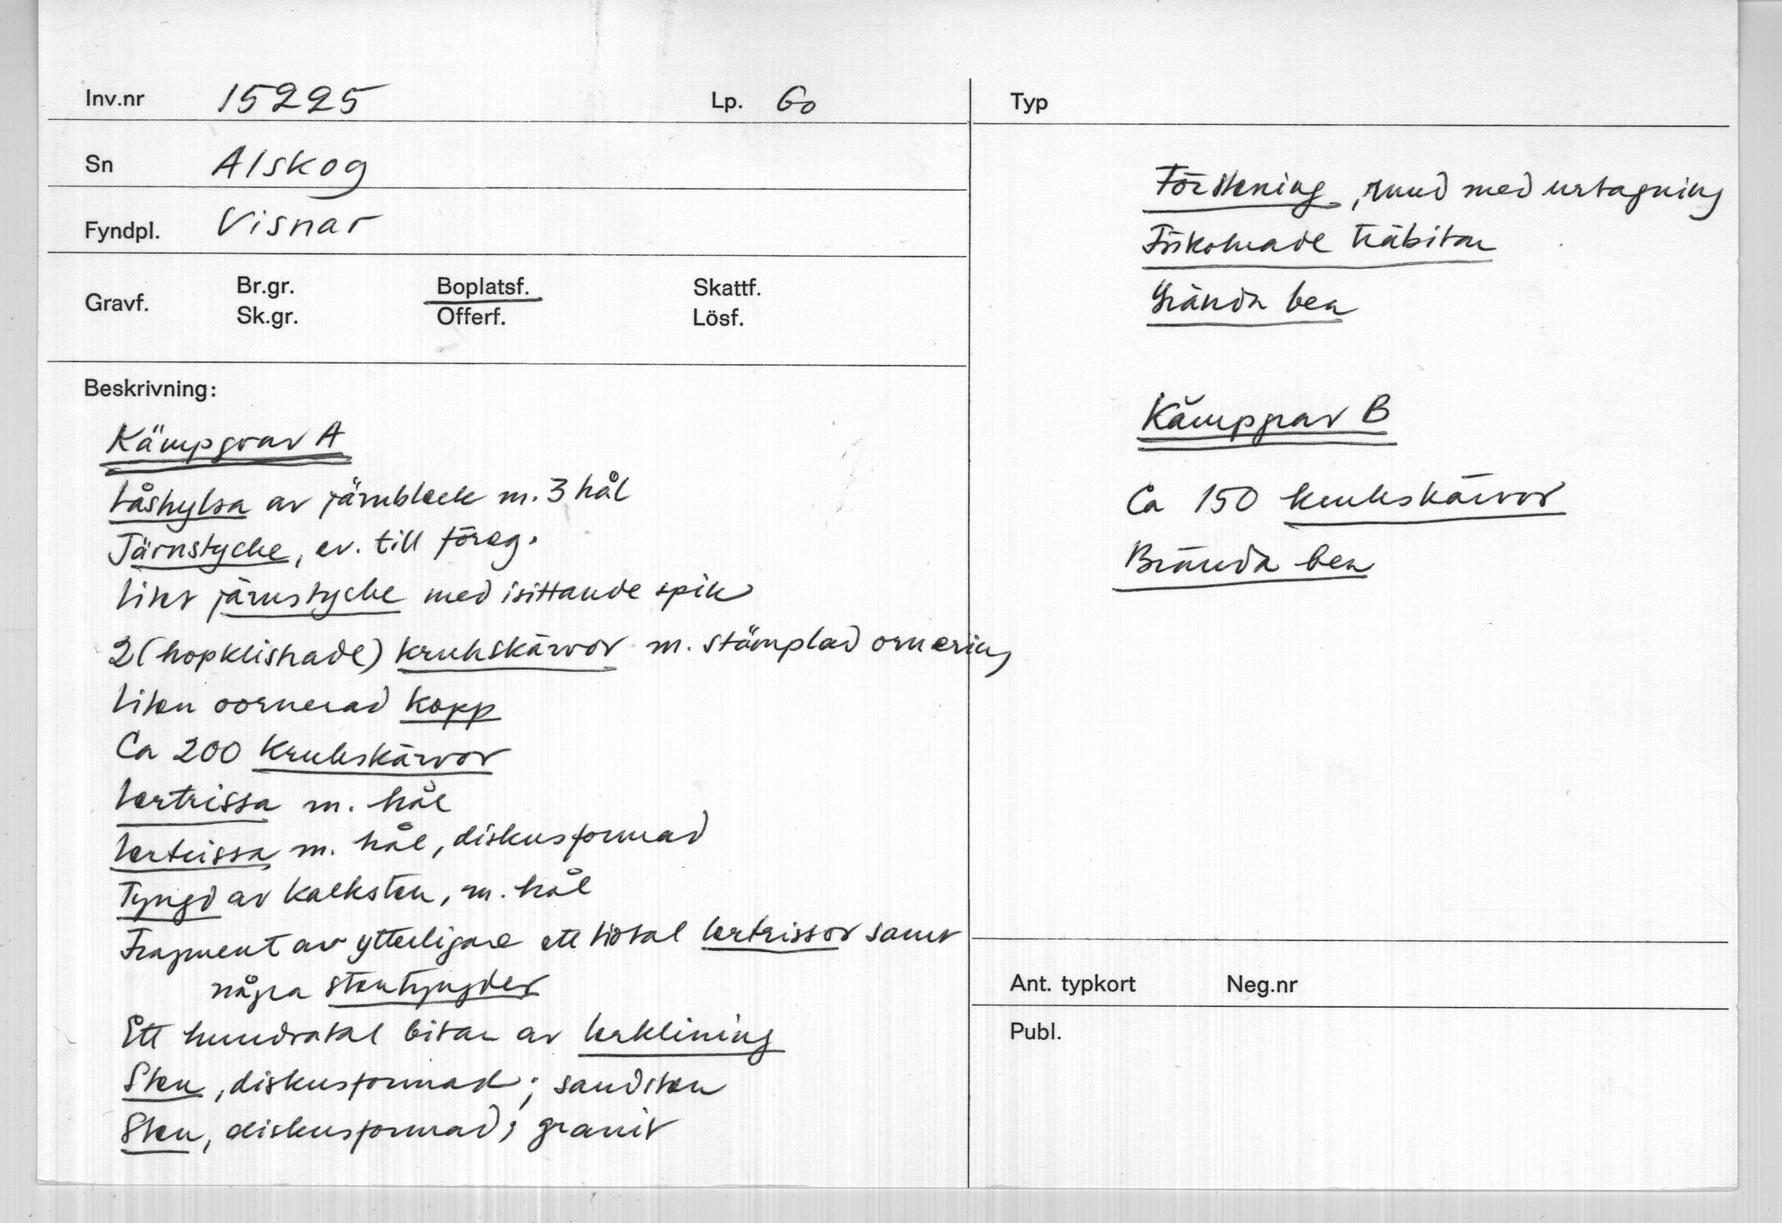 Inv.nr 15225 Lp. Go
Sn Alskog
Fyndpl. Visnar
Gravf. Br.gr. Boplatsf. Skattf.
Sk.gr. Offerf. Lösf.
Beskrivning:
Kämpgrav A
Låshylsa av järnbleck m. 3 hål
Järnstycke, ev. till föreg.
Litet järnstycke med isittande spik
2 (hopklistrade) krukskärvor m. stämplad ornering
Liten oornerad kopp
Ca 200 krukskärvor
Lertrissa m. hål
Lertrissa m. hål, diskusformad
Tyngd av kalksten, m. hål
Fragment av ytterligare ett tiotal lertrissor samt
några stentyngder
Ett hundratal bitar av lerklining
Sten, diskusformad; sandsten
Sten, diskusformad; granit
Typ
Förstening, rund med urtagning
Förkolnade träbitar
Brända ben
Kämpgrav B
Ca 150 krukskärvor
Brända ben
Ant. typkort Neg.nr
Publ.